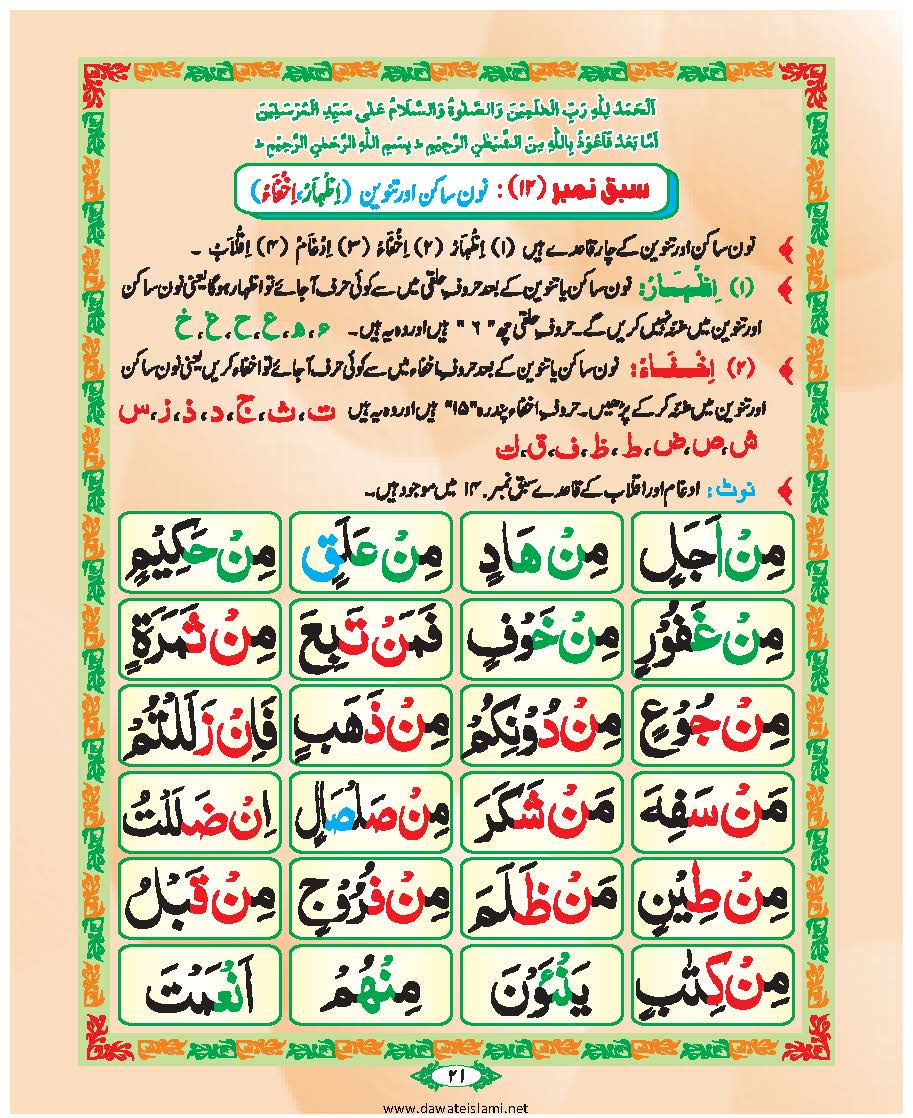 اَلْحَمْدُ لِلّٰهِ رَبِّ الْعٰلَمِيْنَ وَالصَّلٰوةُ وَالسَّلَامُ عَلٰى سَيِّدِ الْمُرْسَلِيْنَ
اَمَّا بَعْدُ فَاَعُوْذُ بِاللّٰهِ مِنَ الشَّيْطٰنِ الرَّجِيْمِ ط بِسْمِ اللّٰهِ الرَّحْمٰنِ الرَّحِيْمِ ط
سبق نمبر (۱۲) : نون ساکن اور تنوین (اِظْہَارْ، اِخْفَاءْ)
نون ساکن اور تنوین کے چار قاعدے ہیں (۱) اِظْہَارْ (۲) اِخْفَاءْ (۳) اِدْغَامْ (۴) اِقْلَابْ ۔
(۱) اِظْہَارْ: نون ساکن یا تنوین کے بعد حروفِ حلقی میں سے کوئی حرف آجائے تو اظہار ہوگا یعنی نون ساکن
اور تنوین میں غنّہ نہیں کریں گے۔ حروفِ حلقی چھ "۶" ہیں اور وہ یہ ہیں۔ ء، ہ، ع، ح، غ، خ
(۲) اِخْفَاءْ: نون ساکن یا تنوین کے بعد حروفِ اخفاء میں سے کوئی حرف آجائے تو اخفاء کریں یعنی نون ساکن
اور تنوین میں غنّہ کرکے پڑھیں۔ حروفِ اخفاء پندرہ "۱۵" ہیں اور وہ یہ ہیں ت، ث، ج، د، ذ، ز، س
ش، ص، ض، ط، ظ، ف، ق، ک
نوٹ: ادغام اور اقلاب کے قاعدے سبق نمبر ۱۴ میں موجود ہیں۔
مِنْ اَجَلٍ مِنْ هَادٍ مِنْ عَلَقٍ مِنْ حَكِيْمٍ
مِنْ غَفُوْرٍ مِنْ خَوْفٍ فَمَنْ تَبِعَ مِنْ ثَمَرَةٍ
مِنْ جُوْعٍ مِنْ دُوْنِكُمْ مِنْ ذَهَبٍ فَاِنْ زَلَلْتُمْ
مَنْ سَفِهَ مَنْ شَكَرَ مِنْ صَلْصَالٍ اِنْ ضَلَلْتُ
مِنْ طِيْنٍ مَنْ ظَلَمَ مِنْ فُرُوْجٍ مِنْ قَبْلُ
مِنْ كِتٰبٍ يَنْئَوْنَ مِنْهُمْ اَنْعَمْتَ
۲۱
www.dawateislami.net